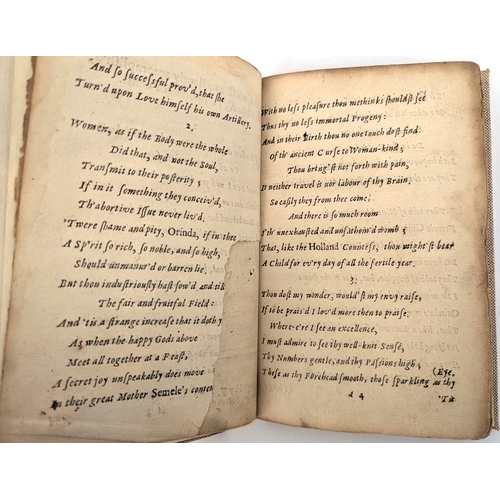 And so successful prov'd, that she
Turn'd upon Love himself his own Artillery.
2.
Women, as if the Body were the whole
Did that, and not the Soul,
Transmit to their posterity;
If in it something they conceiv'd,
Th'abortive Issue never liv'd.
'Twere shame and pity, Orinda, if in thee
A Sp'rit so rich, so noble, and so high,
Should unmanur'd or barren lie.
But thou industriously hast sow'd and till'd
The fair and fruitful Field:
And 'tis a strange increase that it doth y
As when the happy Gods above
Meet all together at a Feast,
A secret joy unspeakably does move
In their great Mother Semele's conten
With no less pleasure thou methinks shouldst see
Thus thy no less immortal Progeny:
And in their Birth thou no one touch dost find
Of th' ancient Curse to Woman-kind;
Thou bring'st not forth with pain,
It neither travel is nor labour of thy Brain.
So easily they from thee come,
And there is so much room
I'th' unexhausted and unfathom'd womb;
That, like the Holland Countess, thou might'st bear
A Child for ev'ry day of all the fertile year.
3.
Thou dost my wonder, would'st my envy raise,
If to be prais'd I lov'd more then to praise.
Where-e're I see an excellence,
I must admire to see thy well-knit Sense,
Thy Numbers gentle, and thy Passions high;
These as thy Forehead smooth, those sparkling as thy
(Eye.
A 4
'Tis